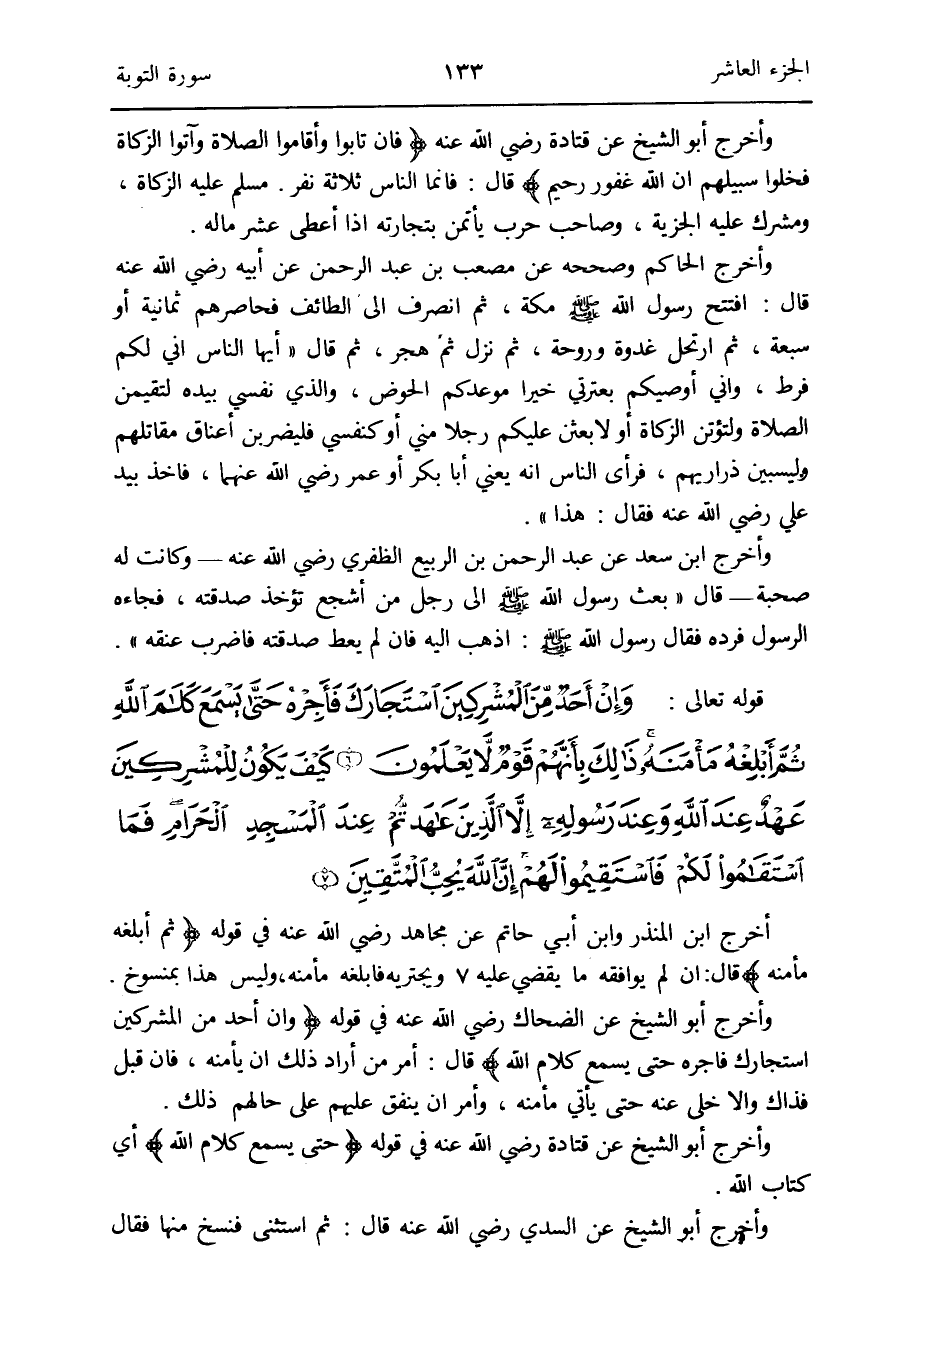 الجزء العاشر
١٣٣
سورة التوبة
وأخرج أبو الشيخ عن قتادة رضي الله عنه ﴿ فان تابوا وأقاموا الصلاة وآتوا الزكاة
فخلوا سبيلهم ان الله غفور رحيم ﴾ قال : فانما الناس ثلاثة نفر . مسلم عليه الزكاة ،
ومشرك عليه الجزية ، وصاحب حرب يأتمن بتجارته اذا أعطى عشر ماله .
وأخرج الحاكم وصححه عن مصعب بن عبد الرحمن عن أبيه رضي الله عنه
قال : افتتح رسول الله ﷺ مكة ، ثم انصرف الى الطائف فحاصرهم ثمانية أو
سبعة ، ثم ارتحل غدوة وروحة ، ثم نزل ثم هجر ، ثم قال « أيها الناس اني لكم
فرط ، واني أوصيكم بعترتي خيرا موعدكم الحوض ، والذي نفسي بيده لتقيمن
الصلاة ولتؤتن الزكاة أو لابعثن عليكم رجلا مني أو كنفسي فليضربن أعناق مقاتلهم
وليسبين ذراريهم ، فرأى الناس انه يعني أبا بكر أو عمر رضي الله عنهما ، فاخذ بيد
علي رضي الله عنه فقال : هذا » .
وأخرج ابن سعد عن عبد الرحمن بن الربيع الظفري رضي الله عنه — وكانت له
صحبة — قال « بعث رسول الله ﷺ الى رجل من أشجع تؤخذ صدقته ، فجاءه
الرسول فرده فقال رسول الله ﷺ : اذهب اليه فان لم يعط صدقته فاضرب عنقه » .
قوله تعالى : وَإِنْ أَحَدٌ مِّنَ ٱلْمُشْرِكِينَ ٱسْتَجَارَكَ فَأَجِرْهُ حَتَّىٰ يَسْمَعَ كَلَٰمَ ٱللَّهِ
ثُمَّ أَبْلِغْهُ مَأْمَنَهُۥ ۚ ذَٰلِكَ بِأَنَّهُمْ قَوْمٌ لَّا يَعْلَمُونَ ﴿٦﴾ كَيْفَ يَكُونُ لِلْمُشْرِكِينَ
عَهْدٌ عِندَ ٱللَّهِ وَعِندَ رَسُولِهِۦٓ إِلَّا ٱلَّذِينَ عَٰهَدتُّمْ عِندَ ٱلْمَسْجِدِ ٱلْحَرَامِ ۖ فَمَا
ٱسْتَقَٰمُوا۟ لَكُمْ فَٱسْتَقِيمُوا۟ لَهُمْ ۚ إِنَّ ٱللَّهَ يُحِبُّ ٱلْمُتَّقِينَ ﴿٧﴾
أخرج ابن المنذر وابن أبي حاتم عن مجاهد رضي الله عنه في قوله ﴿ ثم أبلغه
مأمنه ﴾ قال: ان لم يوافقه ما يقضي عليه ٧ ويجتريه فابلغه مأمنه، وليس هذا بمنسوخ .
وأخرج أبو الشيخ عن الضحاك رضي الله عنه في قوله ﴿ وان أحد من المشركين
استجارك فاجره حتى يسمع كلام الله ﴾ قال : أمر من أراد ذلك ان يأمنه ، فان قبل
فذاك والا خلى عنه حتى يأتي مأمنه ، وأمر ان ينفق عليهم على حالهم ذلك .
وأخرج أبو الشيخ عن قتادة رضي الله عنه في قوله ﴿ حتى يسمع كلام الله ﴾ أي
كتاب الله .
وأخرج أبو الشيخ عن السدي رضي الله عنه قال : ثم استثنى فنسخ منها فقال